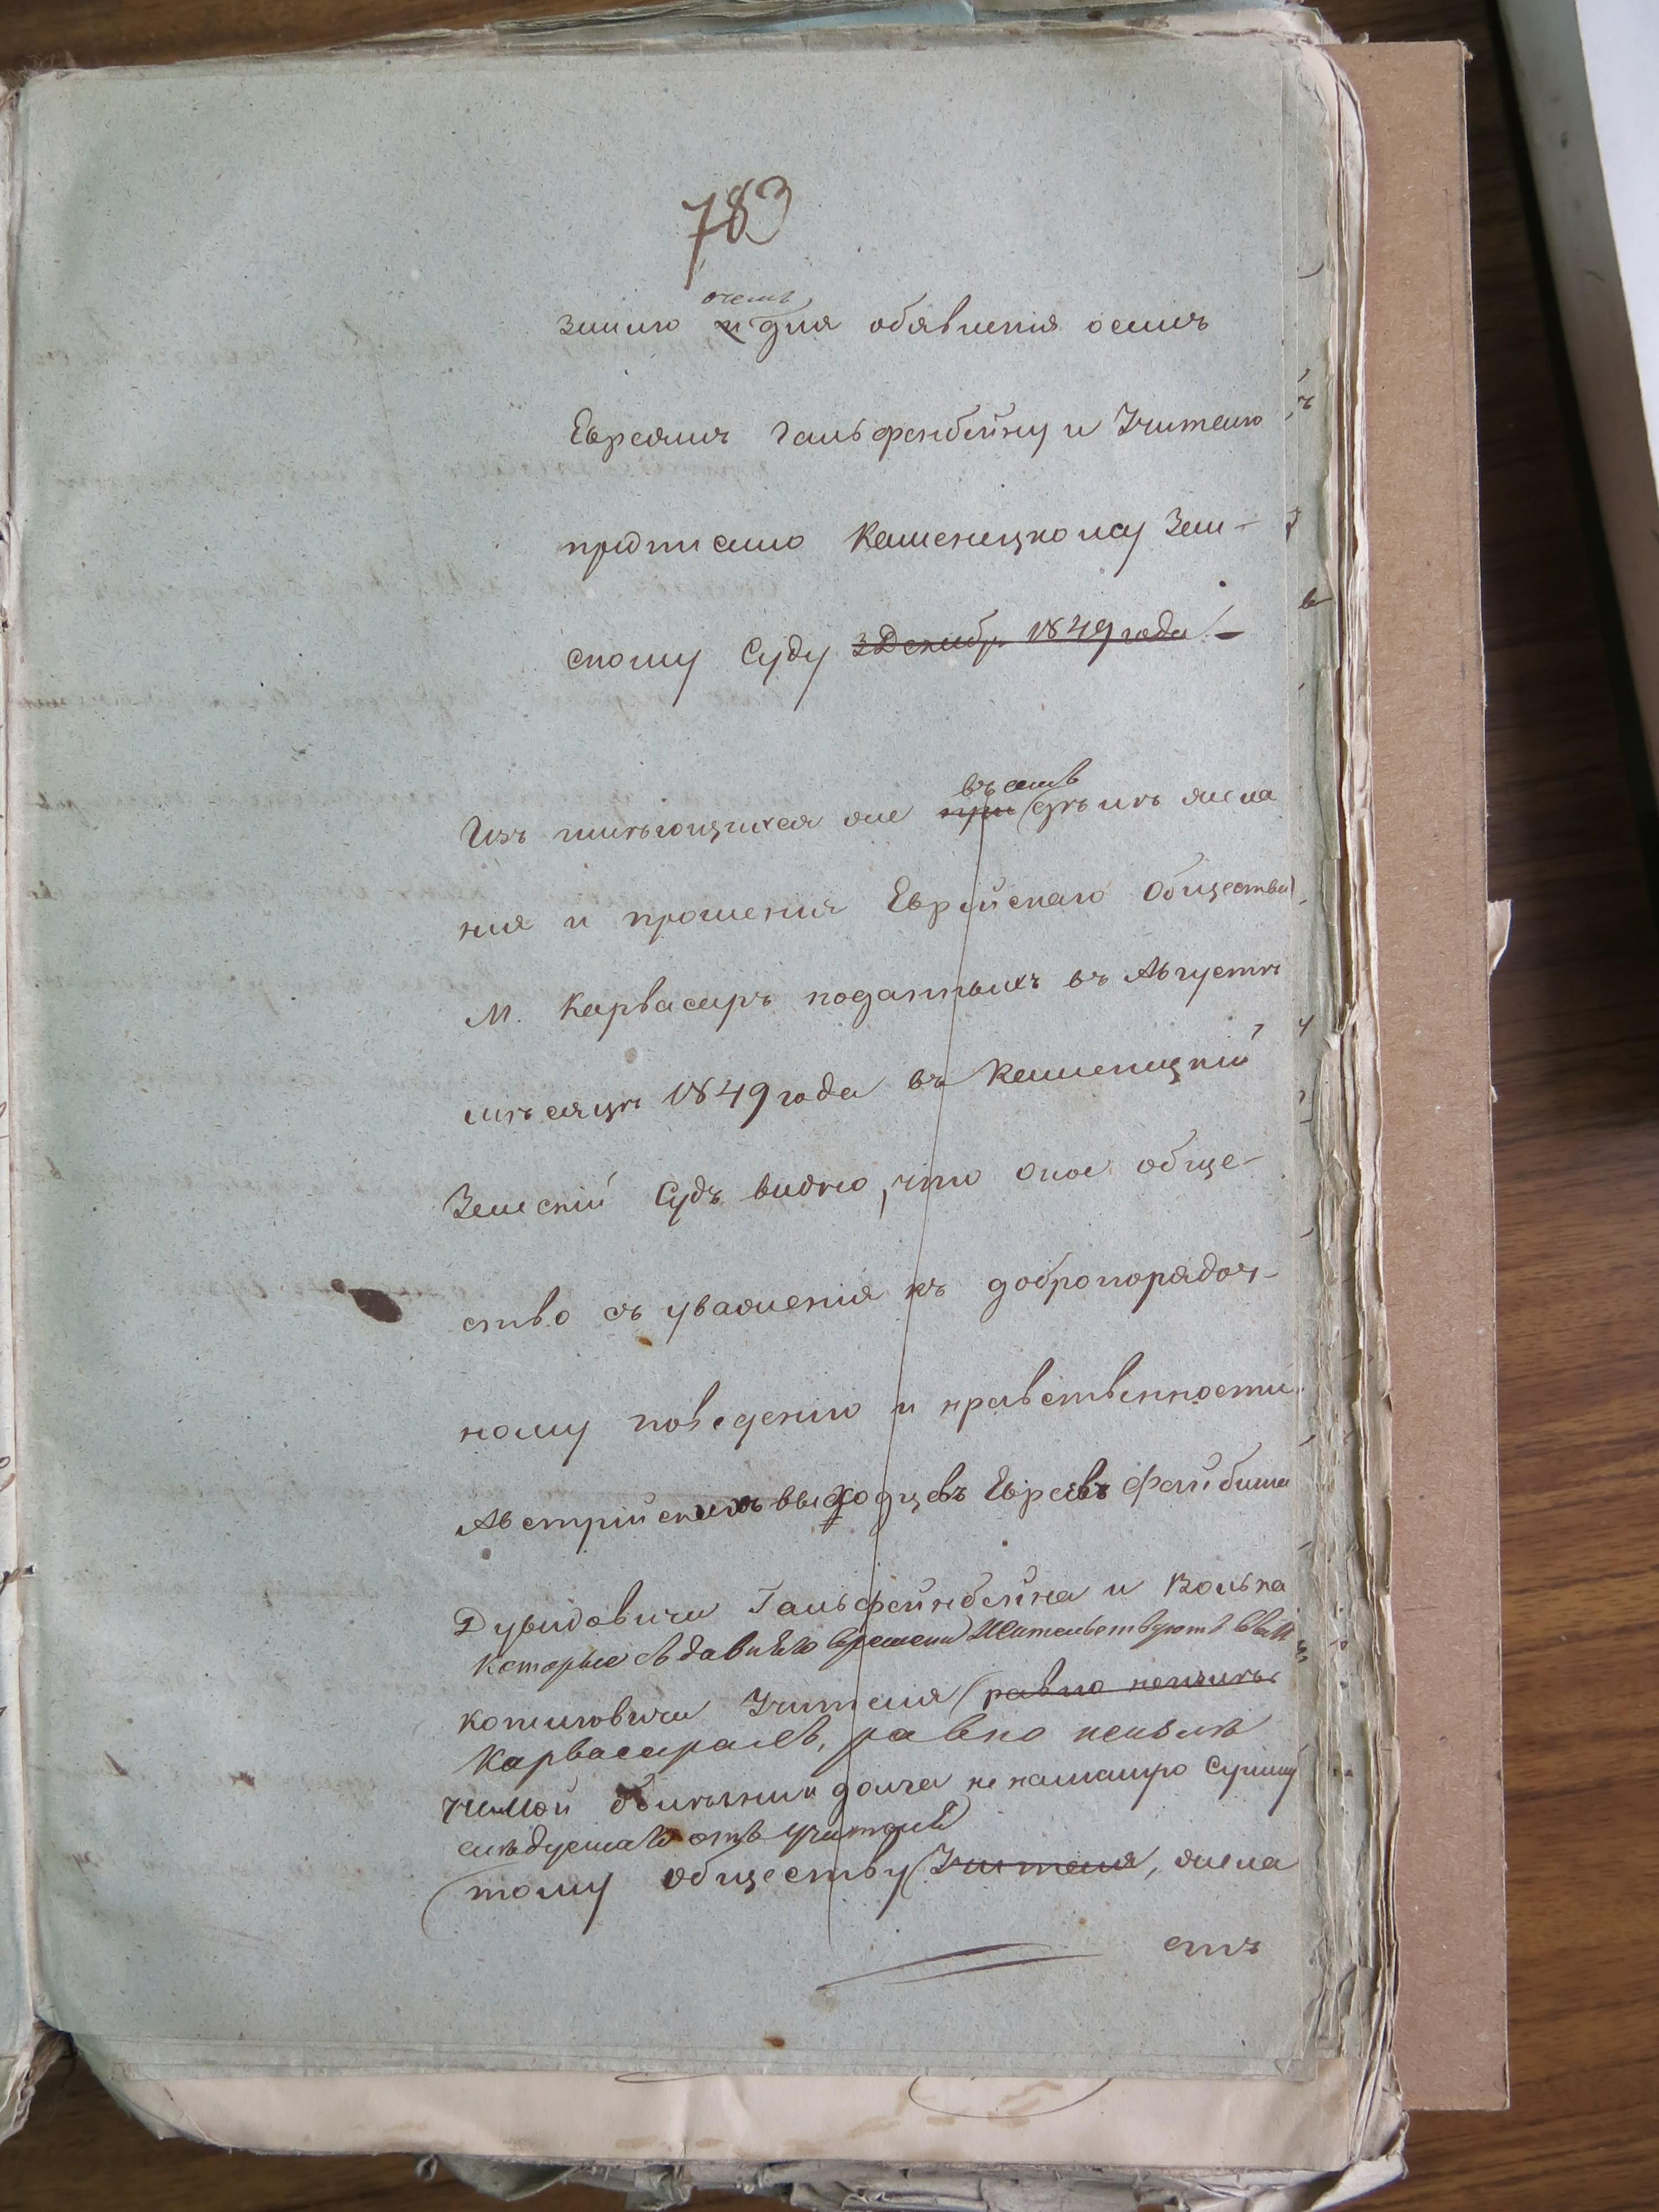 783
о чемъ
земию и для объявленія всемъ
Евреямъ Гальфенбейну и Учителю
предписано Каменецкому Зем-
скому Суду 3 Декабр 1849 года. –
въ семъ
Изъ имѣющихся же при дѣлѣ жела
нія и прошенія Еврейскаго Общества
М. Карвасаръ поданныхъ въ Августѣ
мѣсяцѣ 1849 года въ Каменецкій
Земскій Судъ видно, что оное обще-
ство съ уваженія къ добропорядоч-
ному поведенію и нравственности
Австрійскихъ выходцевъ Евреевъ Файбиша
Дувидовича Гальфейнбейна и Волька
которые съ давняго времени жительствуютъ въ М
Учителя равно
Карвасарахъ, равно
долга
слѣдуемаго отъ Учителя
тому обществу Учителя, жела
етъ